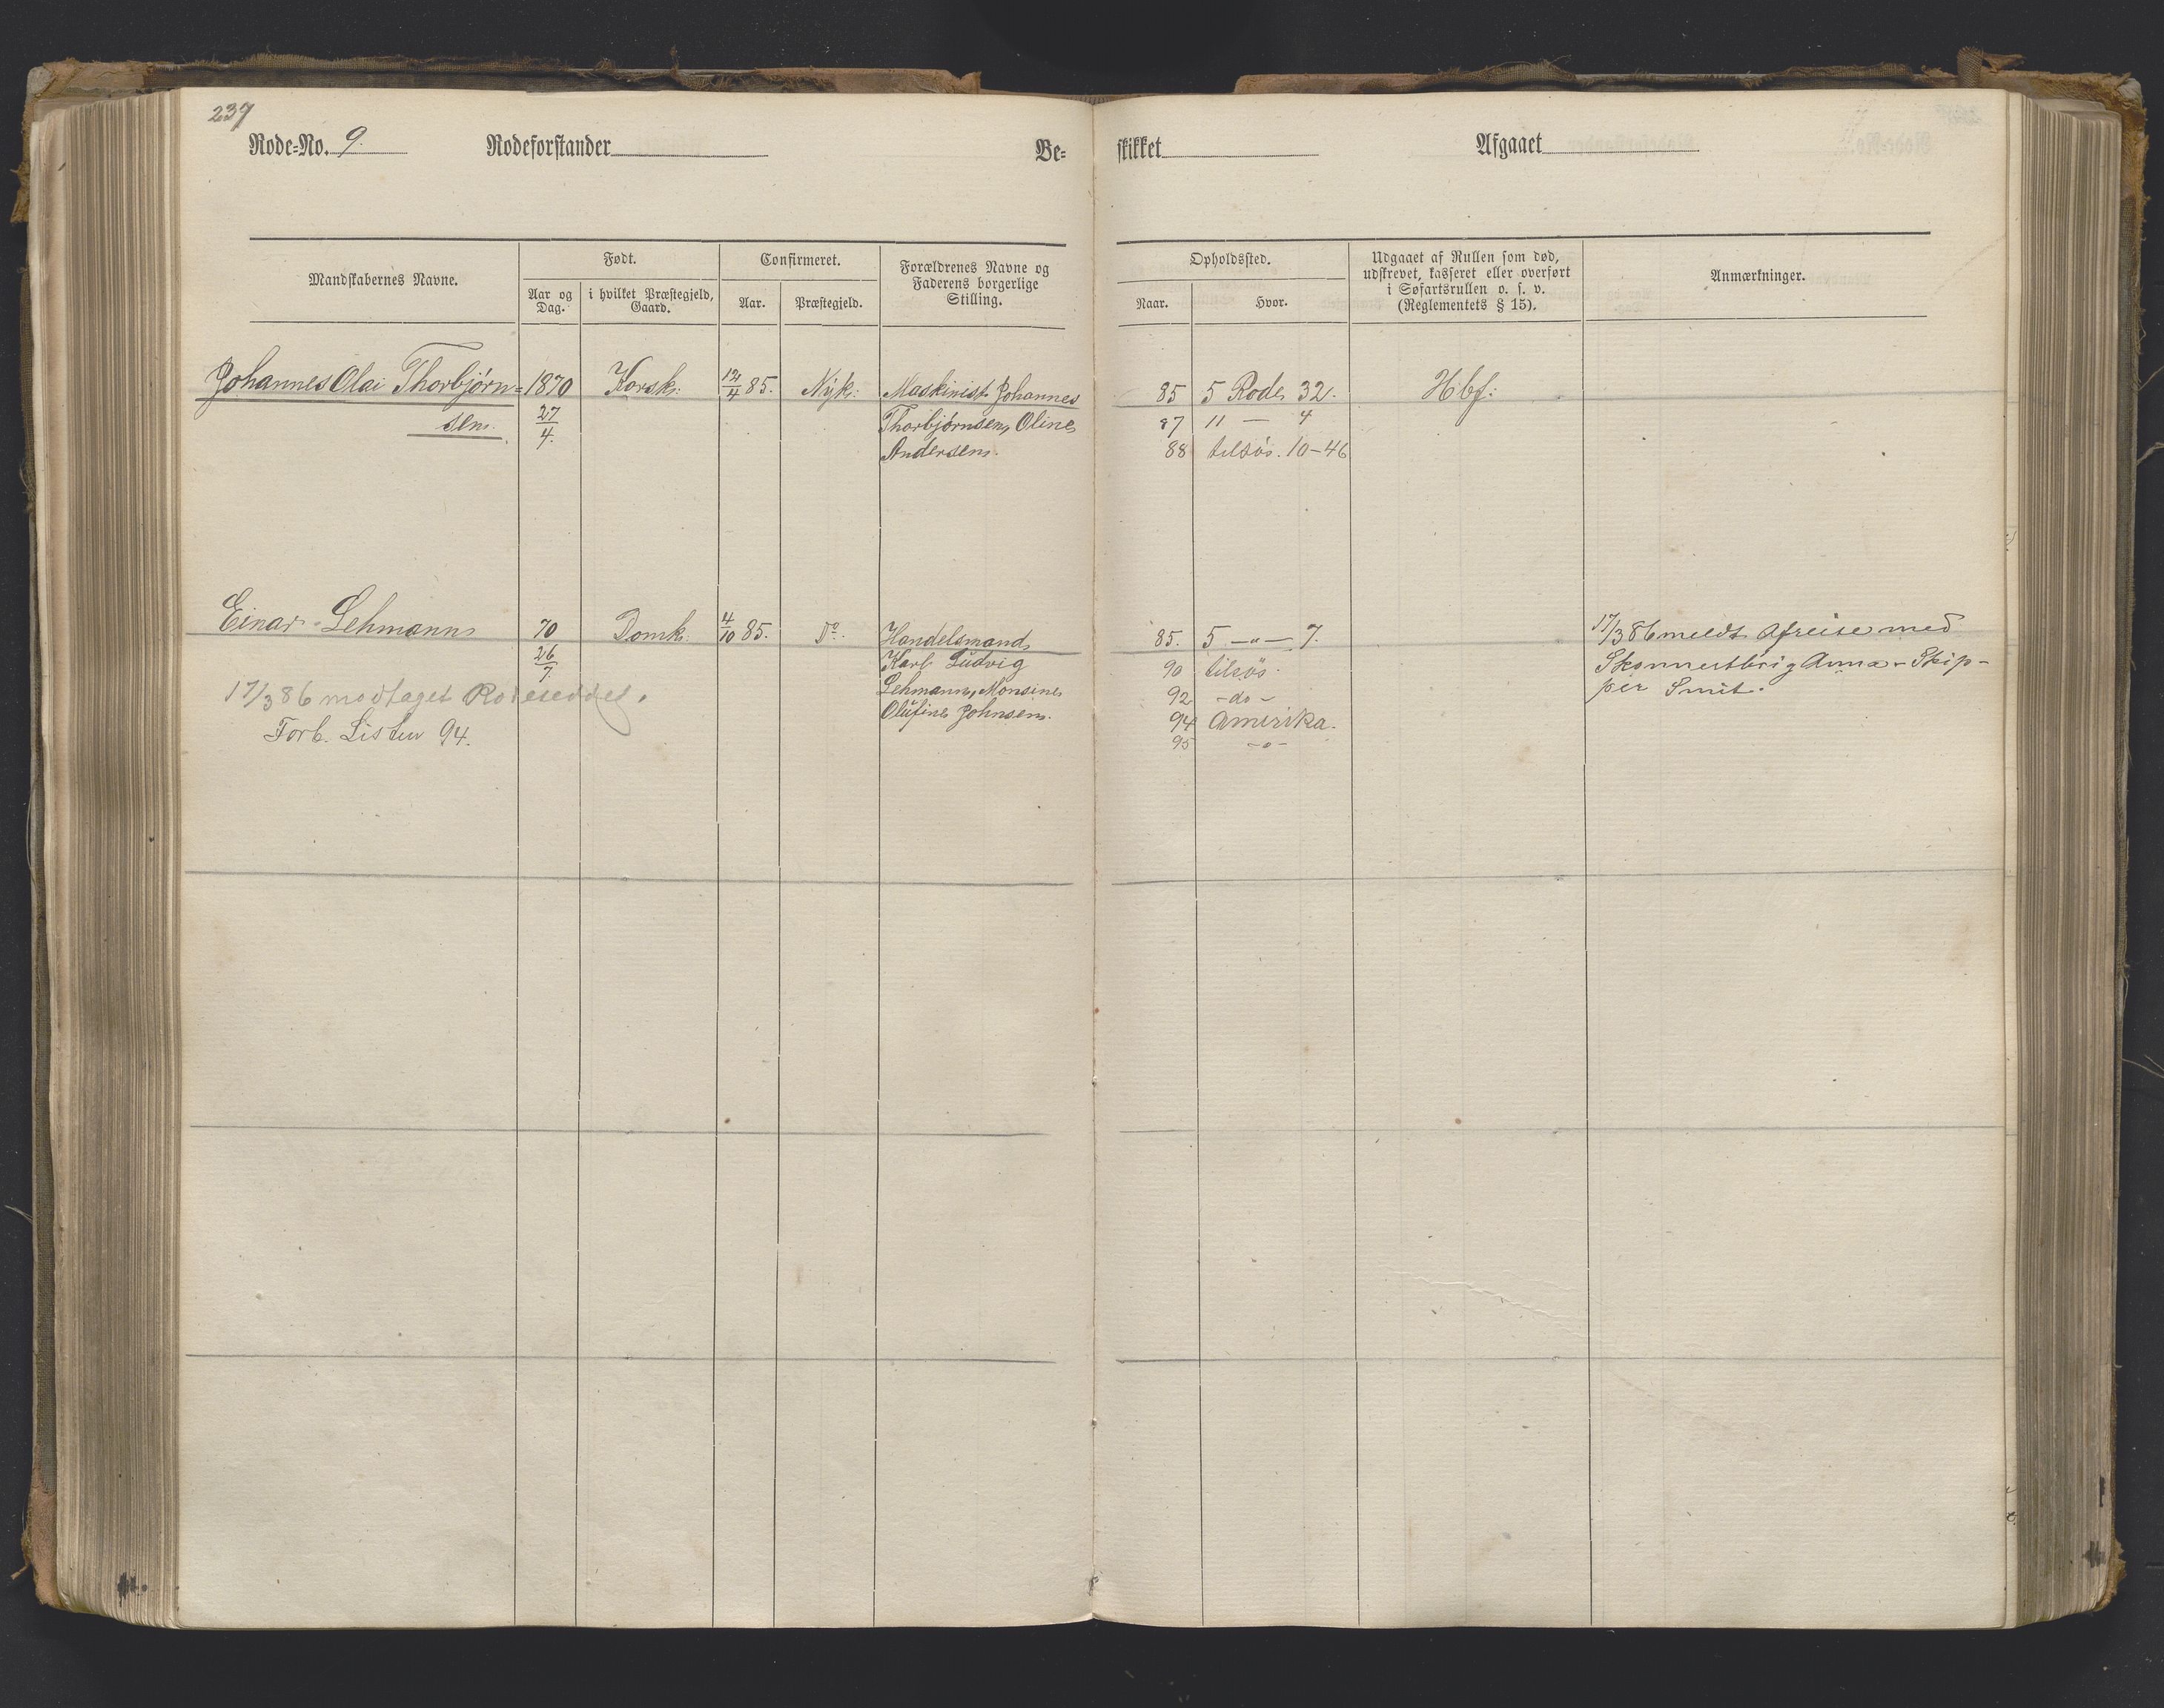 239
Rode-No. 9. Rodeforstander Be-
skikket Afgaaet
Mandskabernes Navne.
Født.
Aar og Dag.
i hvilket Præstegjeld, Gaard.
Confirmeret.
Aar.
Præstegjeld.
Forældrenes Navne og
Faderens borgerlige
Stilling.
Opholdssted.
Naar.
Hvor.
Udgaaet af Rullen som død,
udskrevet, kasseret eller overført
i Søfartsrullen o. s. v.
(Reglementets § 15).
Anmærkninger.
Johannes Olai Thorbjørn= 1870 Korsk: 12/4 85. Nyk: Maskinist Johannes 85 5 Rode 32. Hbf:
sen. 27/4. Thorbjørnsen, Oline 87 11 — 4
Andersen. 88 tilsös. 10-46
Einar Lehmann 70 Domk. 4/10 85. Do. Handelsmand 85. 5 —"— 7. 17/3 86 meldt Afreise med
26/7 Karl Ludvig 90 tilsös. Skonnertbrig Anna - Skip-
17/3 86 modtaget Rodeseddel. Lehmann, Monsine 92 -do- per Smit.
Forb. Listen 94. Olufine Johnsen. 94 Amerika.
95 -o-